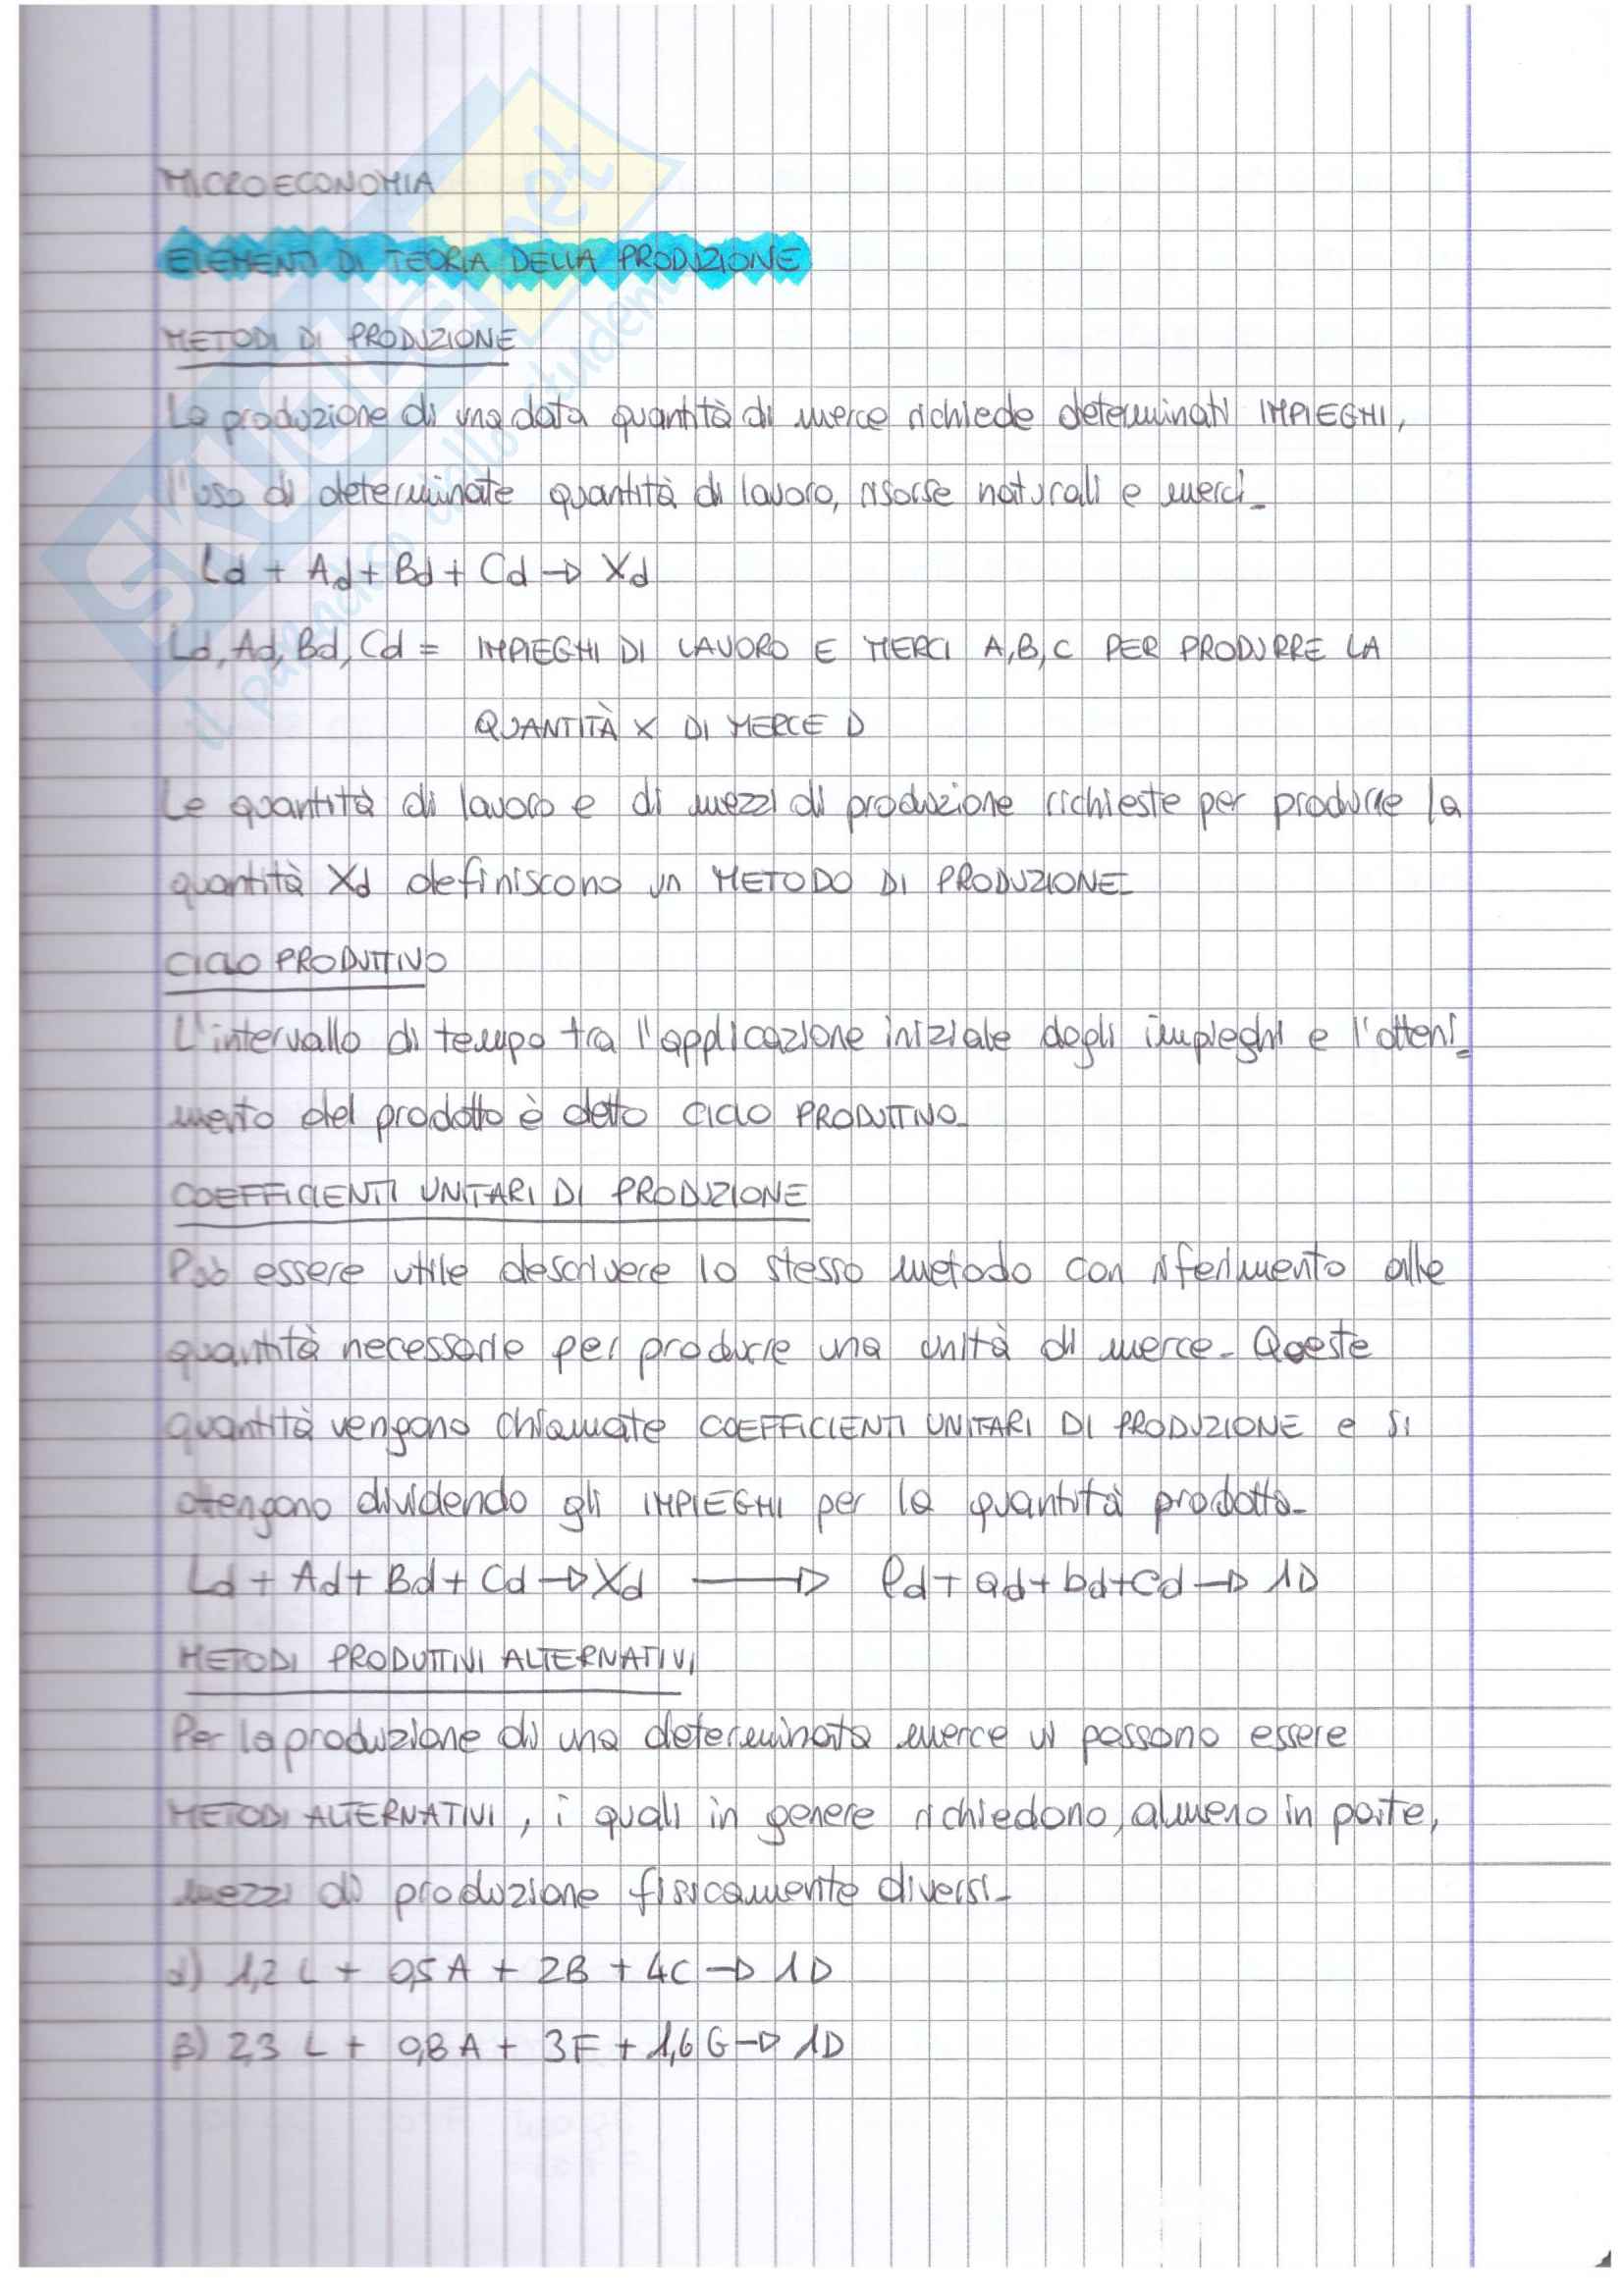 MICROECONOMIA
ELEMENTI DI TEORIA DELLA PRODUZIONE
METODI DI PRODUZIONE
La produzione di una data quantità di merce richiede determinati IMPIEGHI,
l'uso di determinate quantità di lavoro, risorse naturali e merci_
Ld + Ad + Bd + Cd → Xd
Ld, Ad, Bd, Cd = IMPIEGHI DI LAVORO E MERCI A,B,C PER PRODURRE LA
QUANTITÀ X DI MERCE D
Le quantità di lavoro e di mezzi di produzione richieste per produrre la
quantità Xd definiscono un METODO DI PRODUZIONE_
CICLO PRODUTTIVO
L'intervallo di tempo tra l'applicazione iniziale degli impieghi e l'otteni_
mento del prodotto è detto CICLO PRODUTTIVO_
COEFFICIENTI UNITARI DI PRODUZIONE
Può essere utile descrivere lo stesso metodo con riferimento alle
quantità necessarie per produrre una unità di merce_ Queste
quantità vengono chiamate COEFFICIENTI UNITARI DI PRODUZIONE e si
ottengono dividendo gli IMPIEGHI per la quantità prodotta_
Ld + Ad + Bd + Cd → Xd ⟶ ld + ad + bd + cd → 1D
METODI PRODUTTIVI ALTERNATIVI
Per la produzione di una determinata merce vi possono essere
METODI ALTERNATIVI, i quali in genere richiedono, almeno in parte,
mezzi di produzione fisicamente diversi_
α) 1,2 L + 0,5 A + 2B + 4C → 1D
β) 2,3 L + 0,8 A + 3F + 1,6 G → 1D
SKUOLA.net